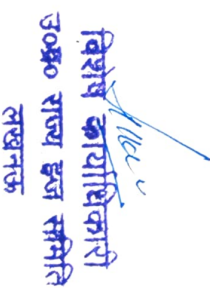 विशेष कार्याधिकारी
उ०प्र० राज्य हज समिति
लखनऊ